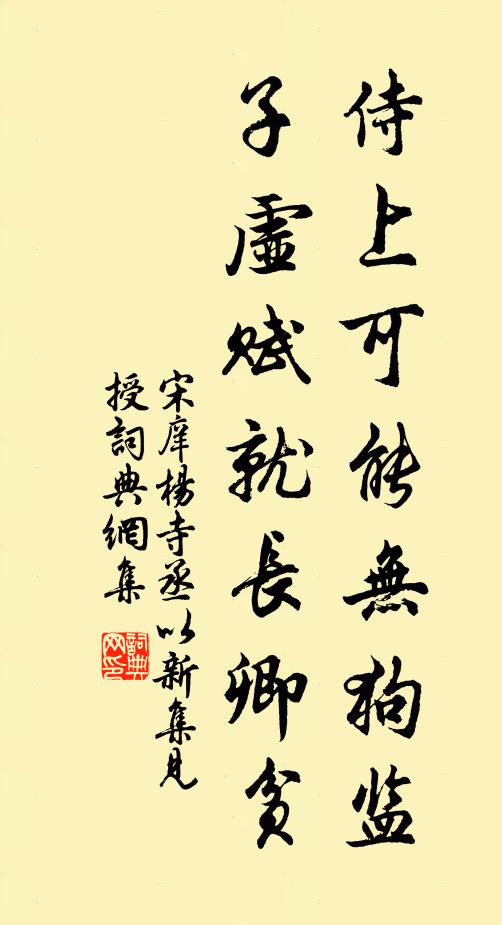 侍上可能無狗监
子虛赋就長卿貧
宋庠楊寺丞以新集見
授詞典網集
詞典網印